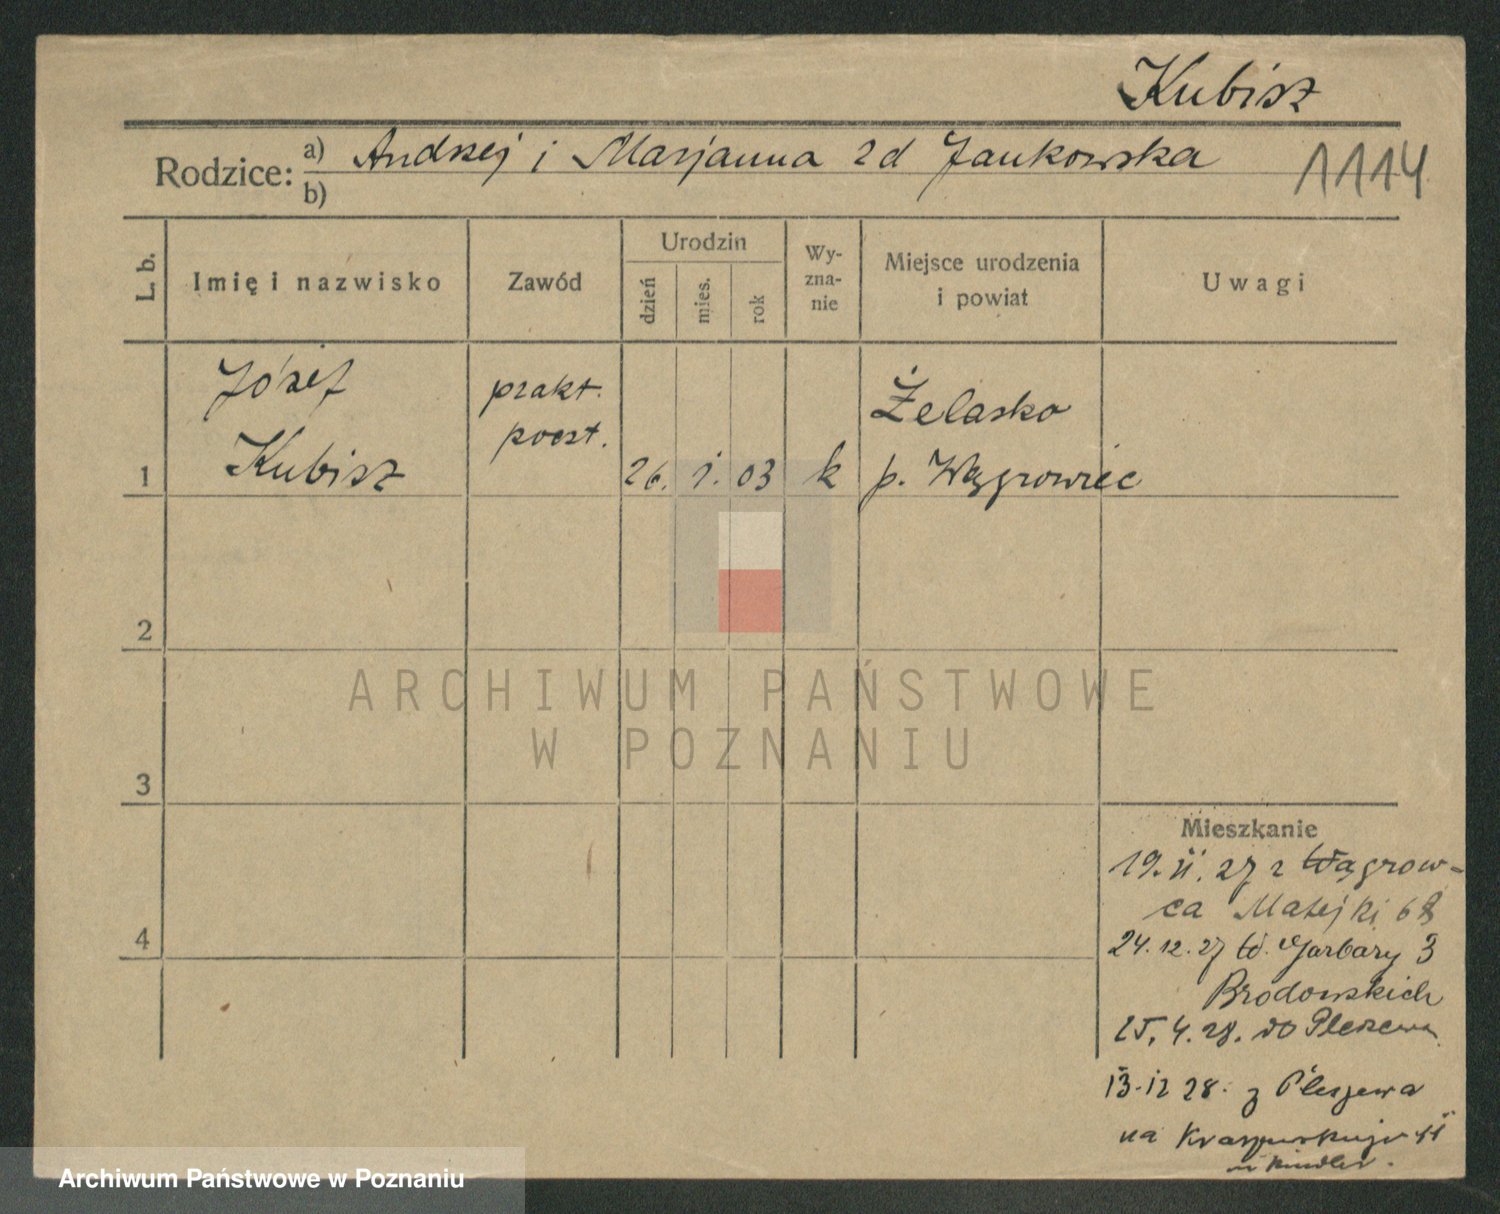 Kubisz
Rodzice: a) Andrzej i Marjanna zd Jankowska
b)
1114
L. b.
Imię i nazwisko
Zawód
Urodzin
dzień
mies.
rok
Wy-
zna-
nie
Miejsce urodzenia
i powiat
Uwagi
Józef
Kubisz
prakt.
poczt.
1
26. 1. 03
k
Żelasko
p. Wągrowiec
2
3
4
ARCHIWUM PAŃSTWOWE
W POZNANIU
Mieszkanie
19. II. 27 z Wągrow-
ca Matejki 68
24. 12. 27 W. Garbary 3
Brodowskich
25. 4. 28. do Pleszewa
13-12 28. z Pleszewa
na 11
Archiwum Państwowe w Poznaniu